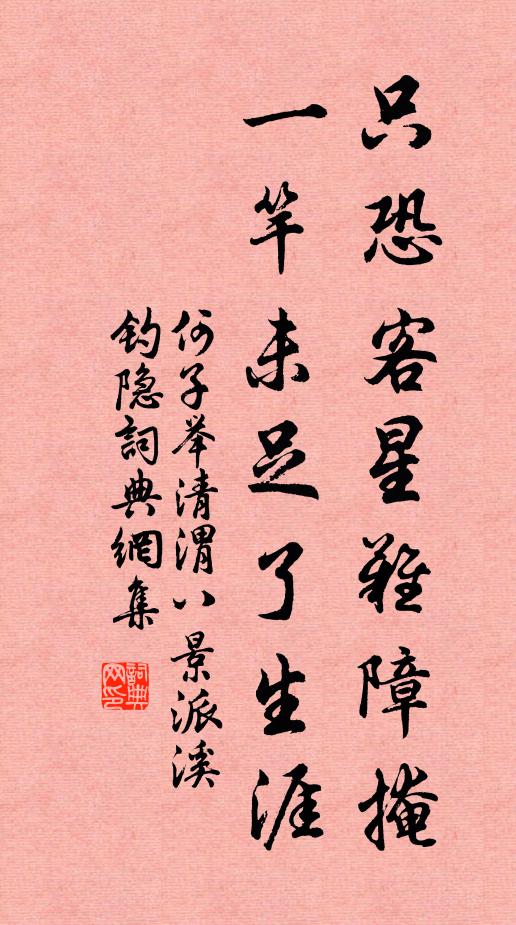 只恐客星難障掩
一竿未足了生涯
何子举清渭八景派溪
钓隐詞典網集
詞典网印